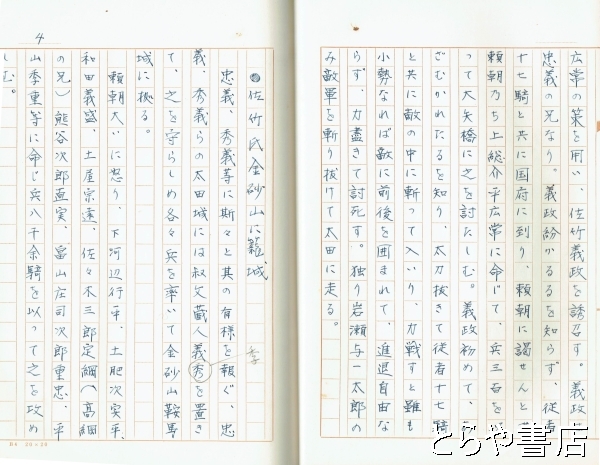 広常の策を用い、佐竹義政を誘召す。義政は
忠義の兄なり。義政紛かるるを知らず、従者
十七騎と共に国府に到り、頼朝に謁せんと
頼朝乃ち上総介平広常に命じて、兵三百を
って大矢橋に之を討たしむ。義政初めて、
ざむかれたるを知り、太刀抜きて従者十七騎
と共に敵の中に斬って入いり、力戦すと雖も
小勢なれば敵に前後を囲まれて、進退自由な
らず、力盡きて討死す。独り岩瀬与一太郎の
み敵軍を斬り抜けて太田に走る。
4
●佐竹氏金砂山に籠城
忠義、秀義等に斯々と其の有様を報ぐ、忠
義、秀義らの太田城には叔父蔵人義秀を置き
季
て、之を守らしめ各々兵を率いて金砂山鞍馬
城に拠る。
頼朝大いに怒り、下河辺行平、土肥次実平、
和田義盛、土屋宗遠、佐々木三郎定綱(高綱
の兄)熊谷次郎直実、畠山庄司次郎重忠、平
山季重等に命じ兵八千余騎を以って之を攻め
しむ。
B4 20×20
とらや書店